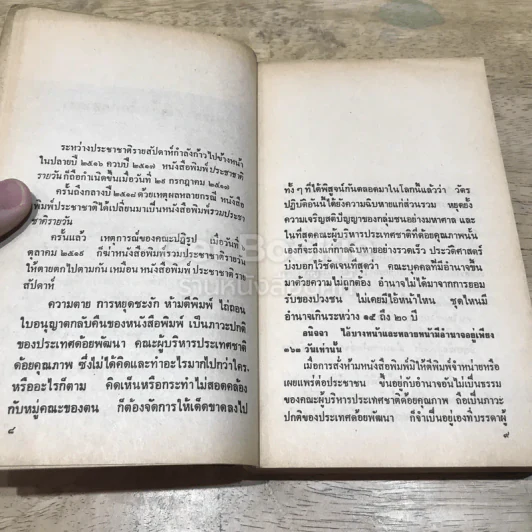 ระหว่างประชาชาติรายสัปดาห์กำลังก้าวไปข้างหน้า
ในปลายปี ๒๕๑๖ ควบปี ๒๕๑๗ หนังสือพิมพ์ ประชาชาติ
รายวัน ก็ถือกำเนิดขึ้นเมื่อวันที่ ๒๙ กรกฎาคม ๒๕๑๗
ครั้นถึงกลางปี ๒๕๑๘ ด้วยเหตุผลหลายกรณี หนังสือ
พิมพ์ประชาชาติได้เปลี่ยนมาเป็นหนังสือพิมพ์รวมประชา
ชาติรายวัน
ครั้นแล้ว เหตุการณ์ของคณะปฏิรูป เมื่อวันที่
ตุลาคม ๒๕๑๙ ก็ฆ่าหนังสือพิมพ์รวมประชาชาติรายวัน
ให้ตายตกไปตามกัน เหมือน หนังสือพิมพ์ ประชาชาติ ราย
สัปดาห์
ความตาย การหยุดชะงัก ห้ามตีพิมพ์ ไถ่ถอน
ใบอนุญาตกลับคืนของหนังสือพิมพ์ เป็นภาวะปกติ
ของประเทศด้อยพัฒนา คณะผู้บริหารประเทศชาติ
ด้อยคุณภาพ ซึ่งไม่ได้คิดและทำอะไรมากไปกว่าใคร
หรืออะไรก็ตาม คิดเห็นหรือกระทำไม่สอดคล้อง
กับหมู่คณะของตน ก็ต้องจัดการให้เด็ดขาดลงไป
๘
ทั้งๆ ที่ได้พิสูจน์กันตลอดมาในโลกนี้แล้วว่า วัตร
ปฏิบัติอันนั้นได้ยังความฉิบหายแก่ส่วนรวม หยุดยั้ง
ความเจริญสติปัญญาของกลุ่มชนอย่างมหาศาล และ
ในที่สุดคณะผู้บริหารประเทศชาติที่ด้อยคุณภาพนั้น
เองก็จะถึงแก่กาลฉิบหายอย่างรวดเร็ว ประวัติศาสตร์
บ่งบอกไว้ชัดเจนที่สุดว่า คณะบุคคลที่มีอำนาจขึ้น
มาด้วยความไม่ถูกต้อง อำนาจไม่ได้มาจากการยอม
รับของปวงชน ไม่เคยมีไอ้หน้าไหน ชุดไหนมี
อำนาจเกินระหว่าง ๑๕ ถึง ๒๐ ปี
อนิจจา ไอ้บางหน้าและหลายหน้ามีอำนาจอยู่เพียง
๓๖๓ วันเท่านั้น
เมื่อการสั่งห้ามหนังสือพิมพ์มิให้ตีพิมพ์จำหน่ายหรือ
เผยแพร่ต่อประชาชน ขึ้นอยู่กับอำนาจอันไม่เป็นธรรม
ของคณะผู้บริหารประเทศชาติด้อยคุณภาพ ถือเป็นภาวะ
ปกติของประเทศด้อยพัฒนา ก็จำเป็นอยู่เองที่บรรดาผู้
๙